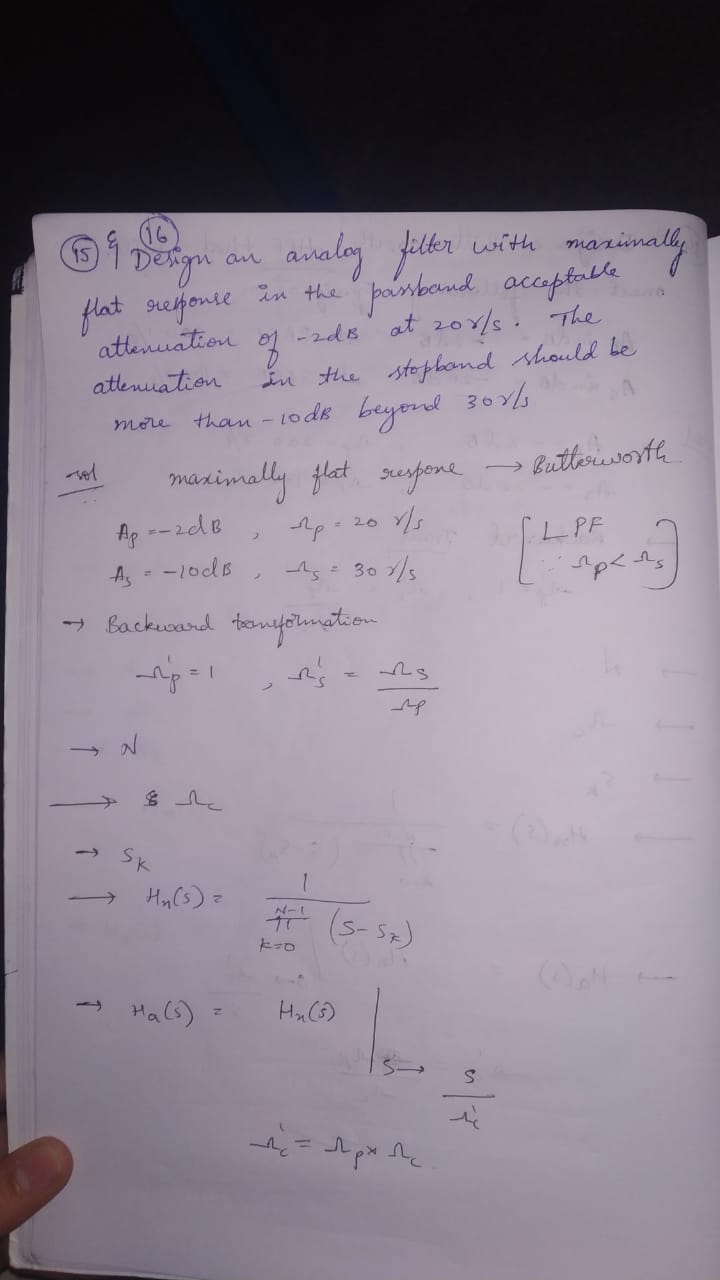 15 & 16 Design an analog filter with maximally
flat response in the passband acceptable
attenuation of -2dB at 20 r/s. The
attenuation in the stopband should be
more than -10dB beyond 30 r/s
sol maximally flat respone → Butterworth
Ap = -2dB , Ωp = 20 r/s [LPF
As = -10dB , Ωs = 30 r/s ∵ Ωp < Ωs]
→ Backward transformation
Ω'p = 1 , Ω's = Ωs
Ωp
→ N
→ Ωc
→ SK
→ Hn(s) = 1
N-1
π (S - Sk)
k=0
→ Ha(s) = Hn(s) |
S→ S
Ω'c
Ω'c = Ωp × Ωc